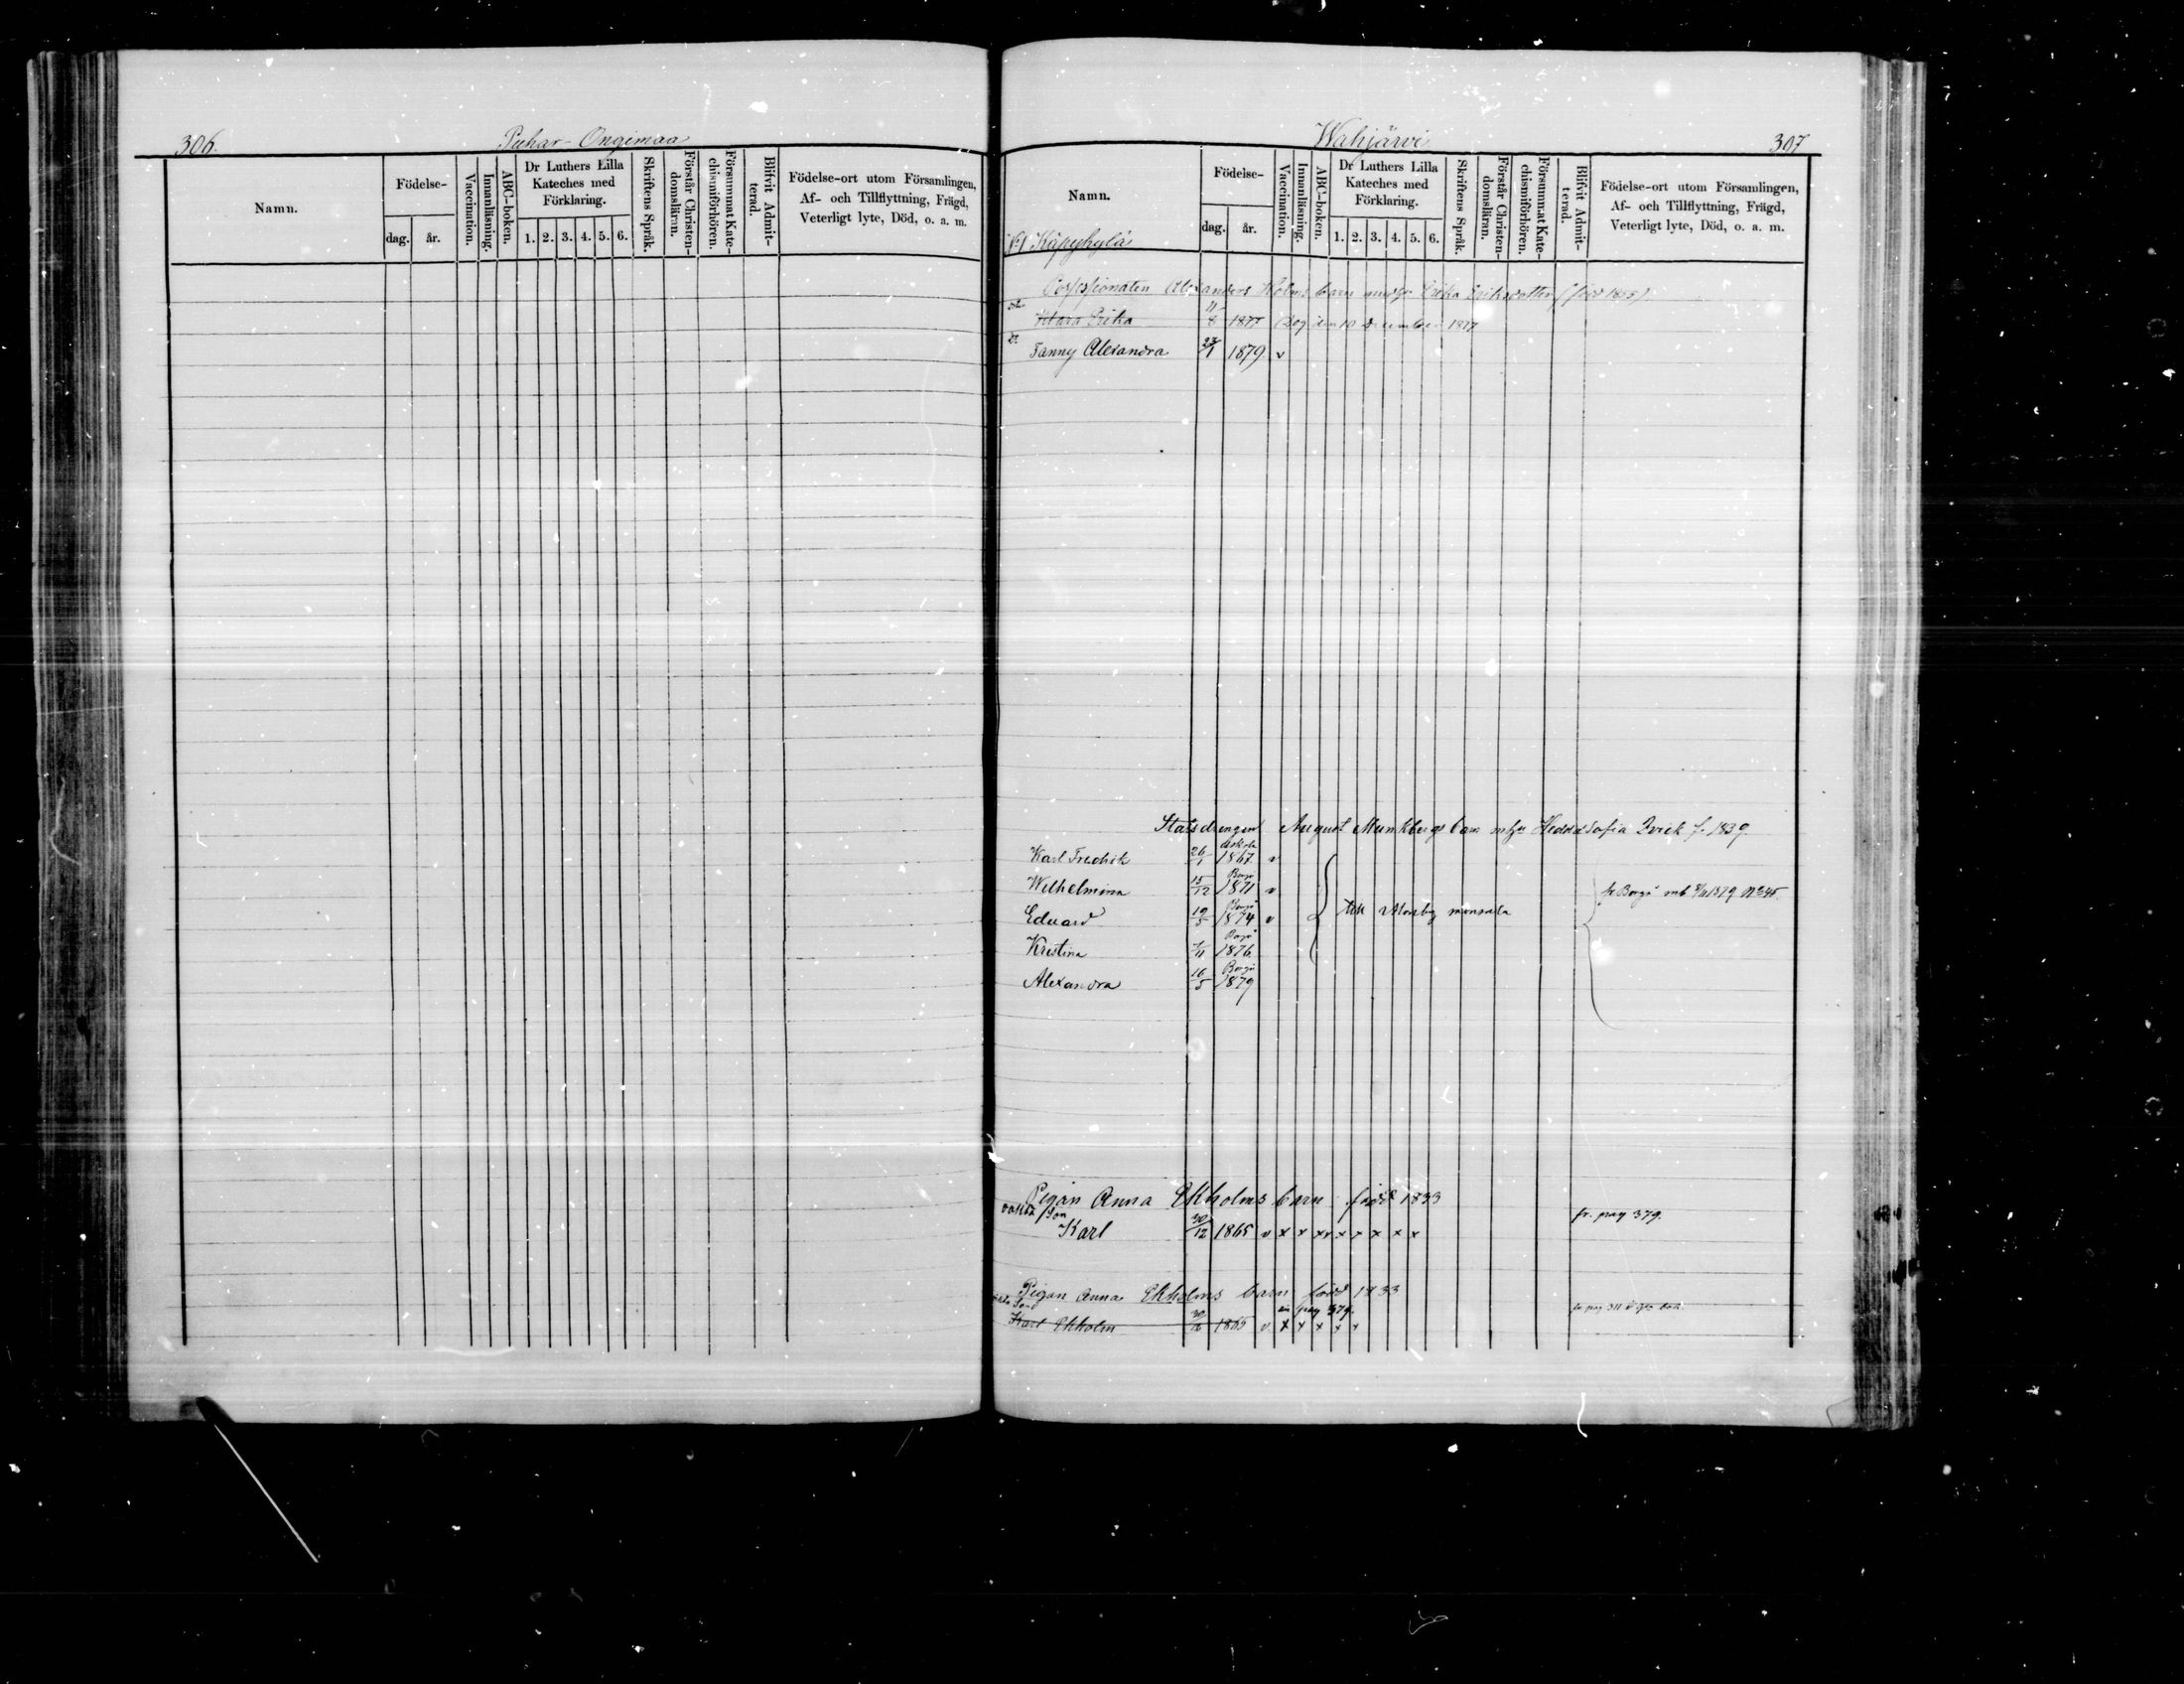 306.
Puhar-Ongimaa
Namn.
Födelse-
dag.
år.
Vaccination.
Innanläsning.
ABC-boken.
Dr Luthers Lilla
Kateches med
Förklaring.
1. 2. 3. 4. 5. 6.
Skriftens Språk.
Förstår Christen-
domsläran.
Försummat Kate-
chismiförhören.
Blifvit Admit-
terad.
Födelse-ort utom Församlingen,
Af- och Tillflyttning, Frägd,
Veterligt lyte, Död, o. a. m.
Wahjärvi
307
Namn.
Födelse-
dag.
år.
Vaccination.
Innanläsning.
ABC-boken.
Dr Luthers Lilla
Kateches med
Förklaring.
1. 2. 3. 4. 5. 6.
Skriftens Språk.
Förstår Christen-
domsläran.
Försummat Kate-
chismiförhören.
Blifvit Admit-
terad.
Födelse-ort utom Församlingen,
Af- och Tillflyttning, Frägd,
Veterligt lyte, Död, o. a. m.
No 1 Käpykylä
Possessionaten Alexanders Holms barn Erika Eriksdotter
Klara Erika 11/8 1877 Dog den 10 December 1877
Fanny Alexandra 1879 v
Statsdrengen August Munkbergs barn Hedda Sofia f. 1839
Karl Fredrik 26/1 Askola 1867. v
Wilhelmina 15/12 Borgå 1871 v fr Borgå
Eduard 19/5 Borgå 1874 v
Kristina Borgå 1876
Alexandra 16/5 Borgå 1879
Pigan Anna Ekholms barn född 1833
oäkta Son fr. pag 379.
Karl 30/12 1865 v x x x x x x x x x
Pigan Anna Ekholms barn född 1833
Son pag 379.
Karl Ekholm 30/12 1865 v x x x x x